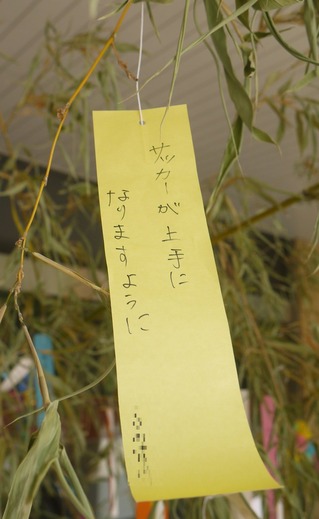 サッカーが土手に
なりますように